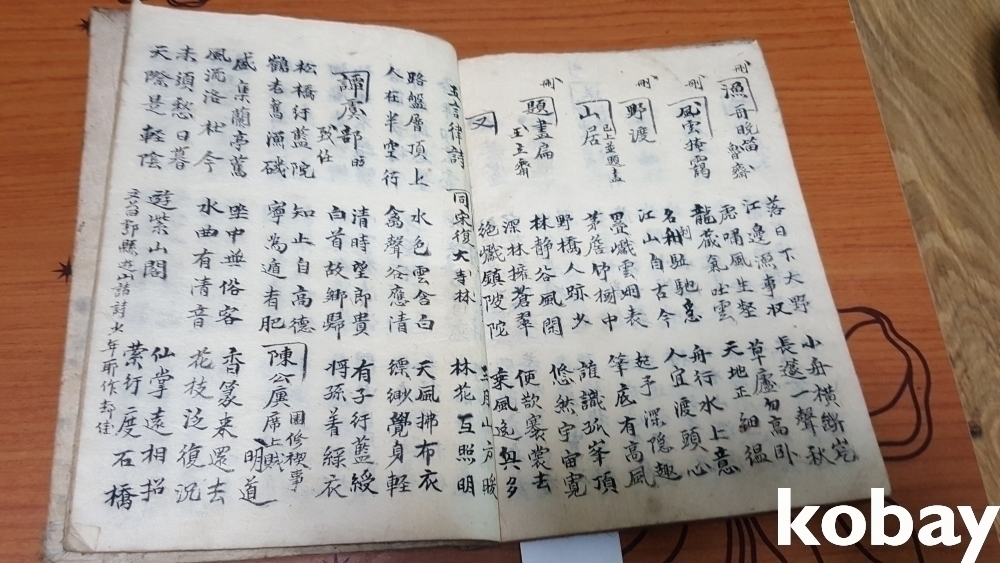 刪 漁哥晚笛 魯齋
落日下大野 小舟橫斷岸
江邊漁事收 長邃一聲秋
刪 風雲掩靄
虎嘯風生壑 草廬勿高卧
龍藏氣吐雲 天地正細緼
刪 野渡
名利駈馳急 舟行水上意
江山自古今 人宜渡頭心
山居 已上並題畫
疊巘雲烟表 起予深隱趣
茅茨竹樹中 筆底有高風
刪 題畫扁 王主齋
野橋人跡少 誰識孤峯頂
林静谷風閑 悠然宇宙寬
又
深林擁蒼翠 便欲褰裳去
絕巘鎮陂陀 乘風逸興多
五言律詩 同宋復大寺林
三月山方暖
林花互照明
路盤層頂上 水色雲含白 天風拂布衣
人在半空行 禽聲谷應清 縹緲覺身輕
譚虞部昉致仕
清時望郎貴 有子行藍綬
白首故鄉歸 將孫着綵衣
松橋紆藍院 知止自高德
鶴老舊漁磯 寧為遁者肥
陳公廙園修禊事席上賦 明道
盛集蘭亭舊 坐中無俗客 香篆來還去
風流洛社今 水曲有清音 花枝泛復沉
未須愁日暮
天際是輕陰
遊紫山閣
郭縣遊山諸詩少年所作却佳
仙掌遠相招
縈紆度石橋
kobay